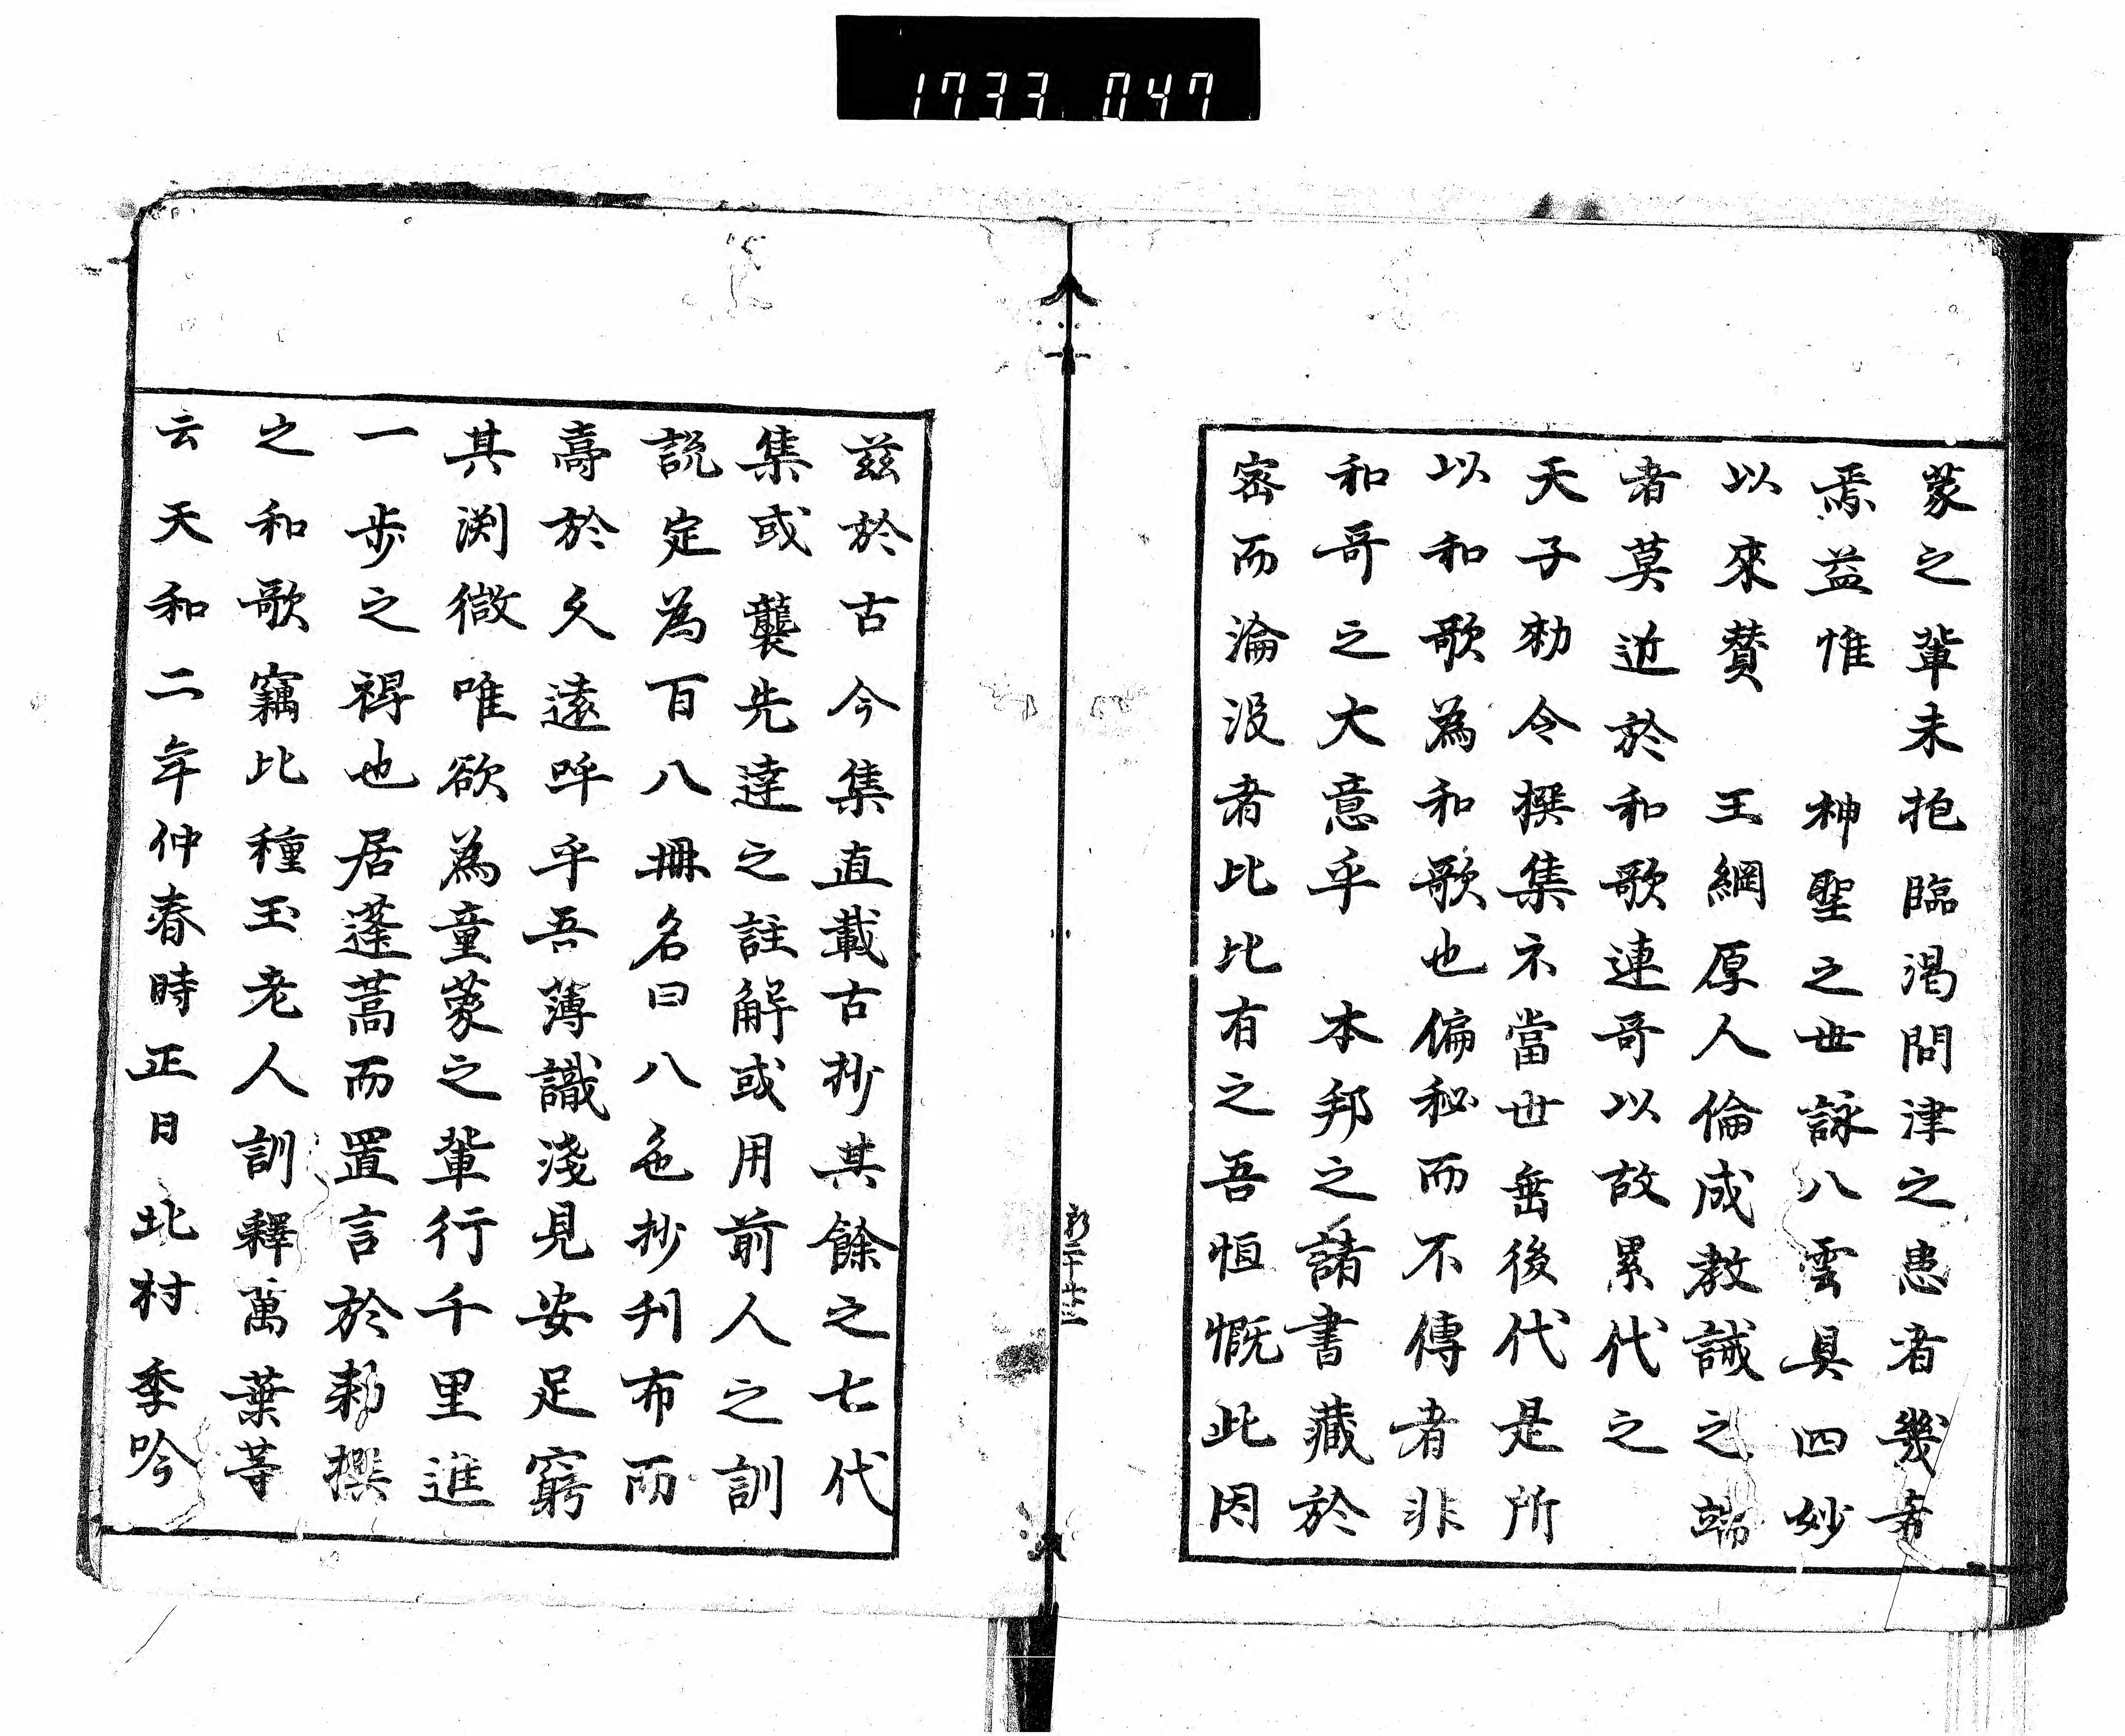 1733 047
蒙之輩未抱臨渇問津之患者幾希
焉益惟　神聖之世詠八雲具四妙
以來賛　王綱厚人倫成教誡之端
者莫近於和歌連哥以故累代之
天子勅令撰集不當世垂後代是所
以和歌為和歌也偏秘而不傳者非
和哥之大意乎　本邦之諸書藏於
密而淪没者比比有之吾恒慨此因
新二十 廿三
茲於古今集直載古抄其餘之七代
集或襲先達之註解或用前人之訓
説定為百八冊名曰八代抄刋布而
壽於久遠呼乎吾薄識淺見安足窮
其渕微唯欲為童蒙之輩行千里進
一歩之得也居蓬蒿而置言於勅撰
之和歌竊比種玉老人訓釋萬葉等
云天和二年仲春時正日北村季吟